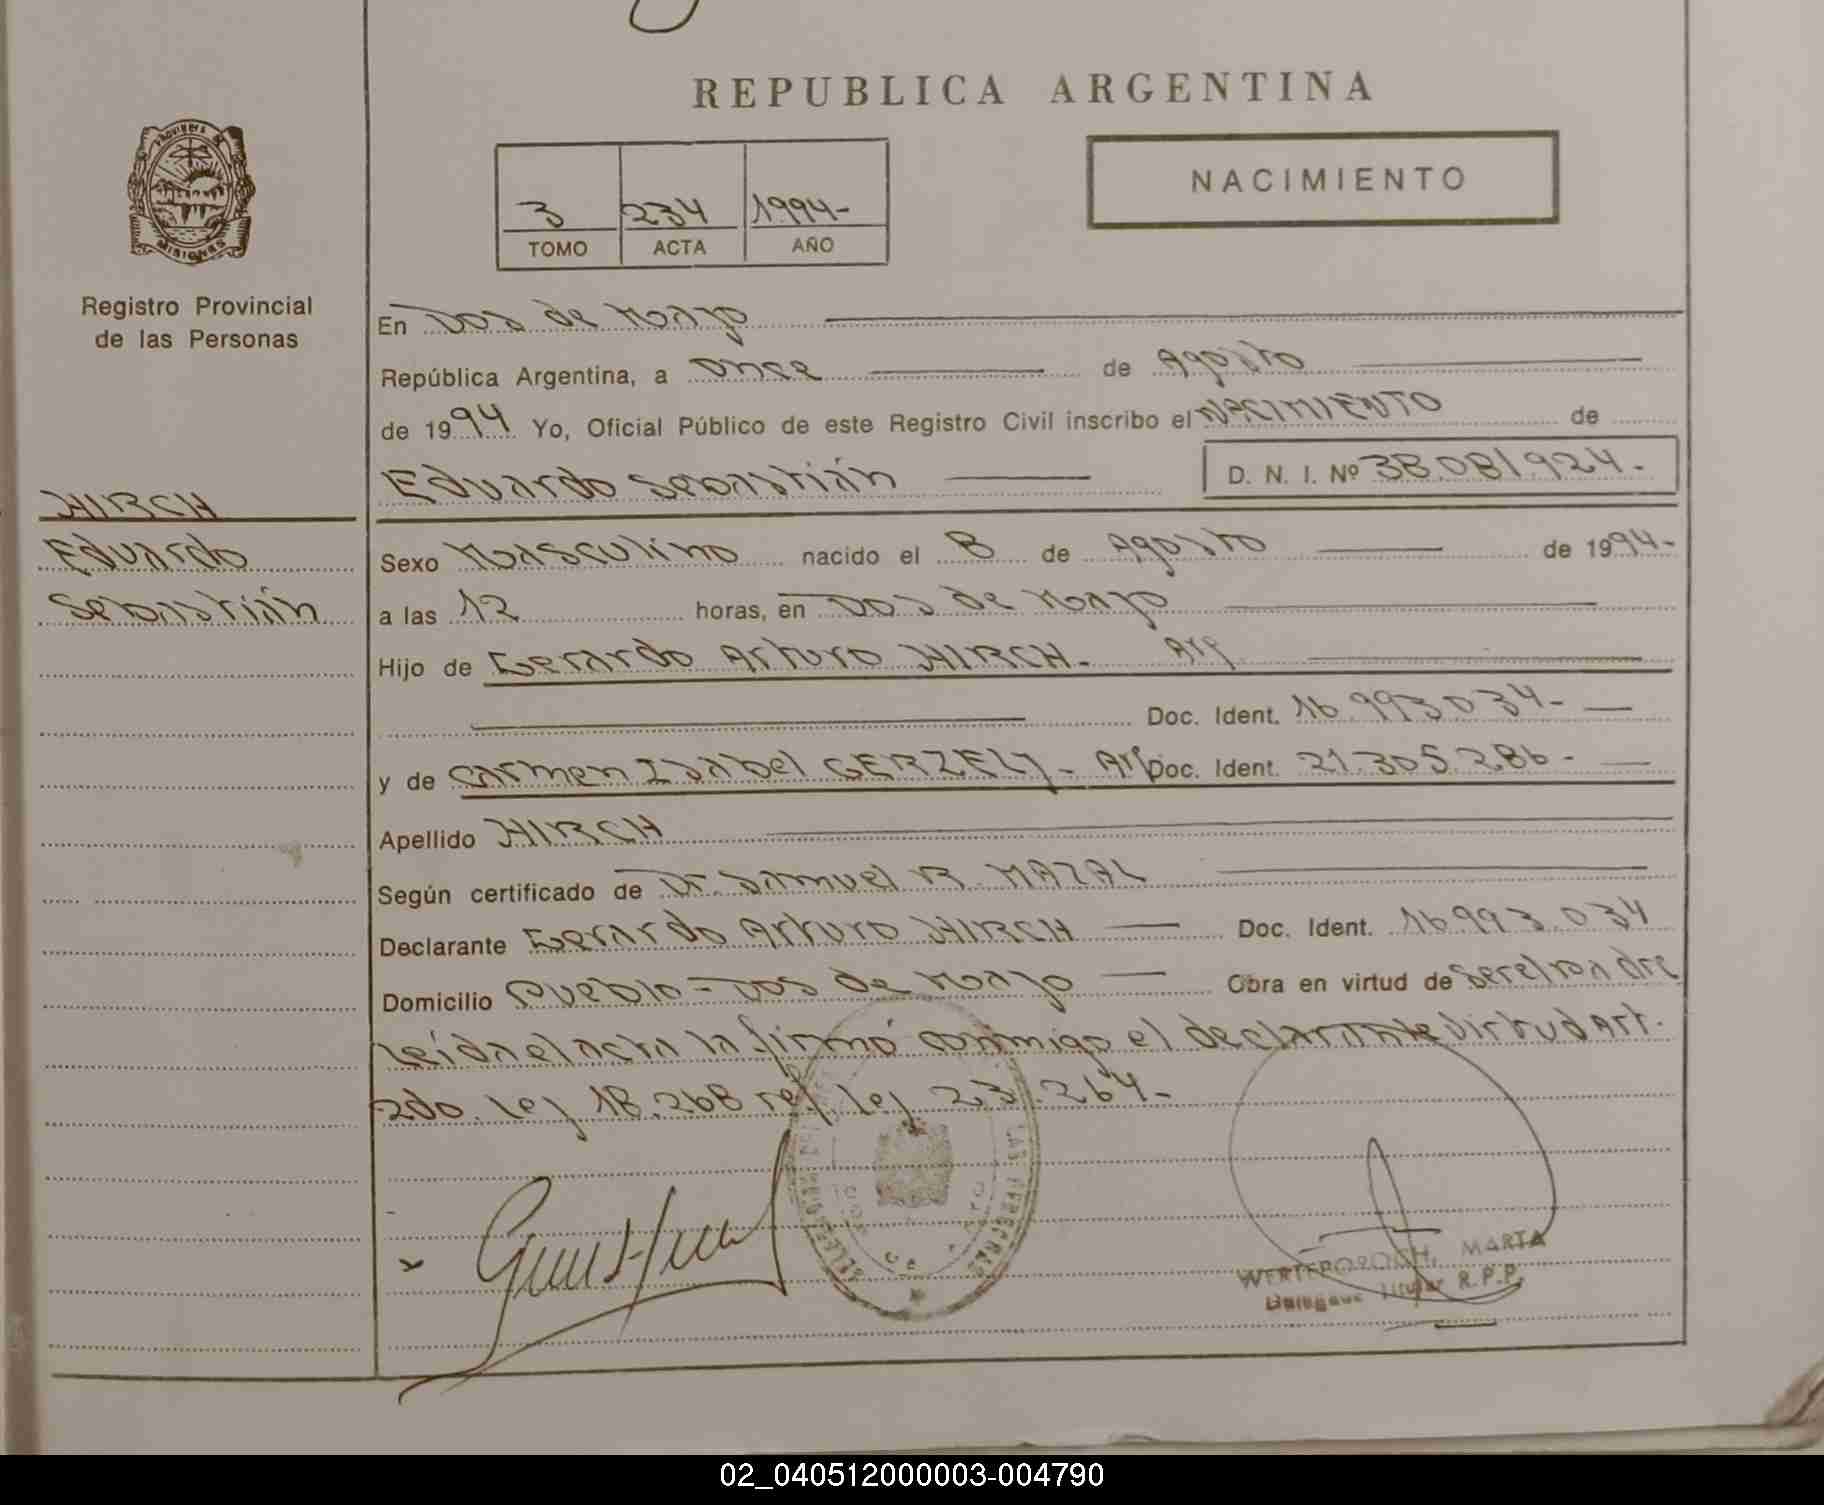 REPUBLICA ARGENTINA
PROVINCIA DE MISIONES
3 234 1994-
TOMO ACTA AÑO
NACIMIENTO
Registro Provincial
de las Personas
HIRCH
Eduardo
Sebastián
En Dos de Mayo
República Argentina, a once de Agosto
de 1994 Yo, Oficial Público de este Registro Civil inscribo el NACIMIENTO de
Eduardo Sebastián D. N. I. Nº 38.081.924.-
Sexo Masculino nacido el 8 de Agosto de 1994-
a las 12 horas, en Dos de Mayo
Hijo de Gerardo Arturo HIRCH. Arg
Doc. Ident. 16.993.034-
y de Carmen Isabel GERZELJ- Arg Doc. Ident. 21.305.286-
Apellido HIRCH
Según certificado de Dr. Samuel R. MAZAL
Declarante Gerardo Arturo HIRCH Doc. Ident. 16.993.034
Domicilio Pueblo-Dos de Mayo Obra en virtud de Ser el
Leída el acta la firmó conmigo el declarante Virtud Art.
2do. Ley 18.268 ref. ley 23.264-
MARTA
Titular R.P.P.
02_040512000003-004790